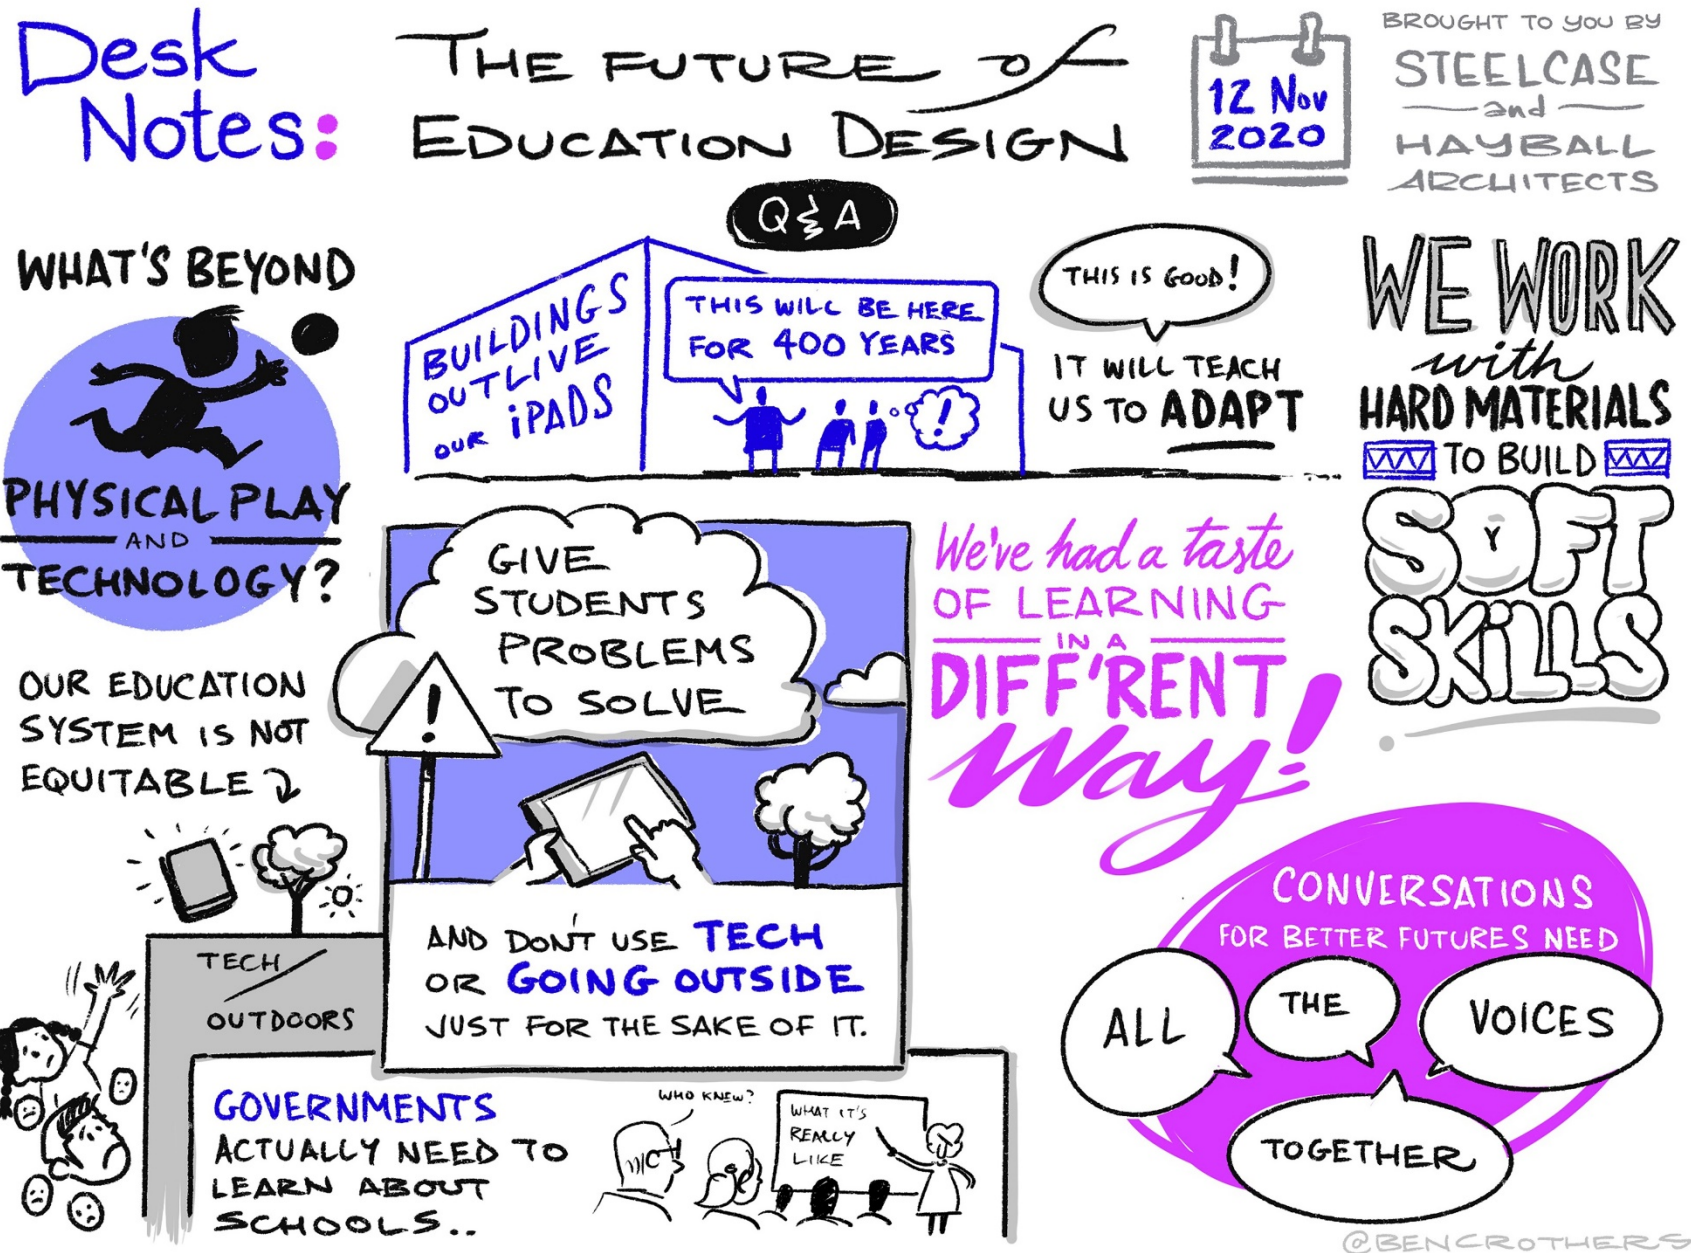 Desk
Notes:
THE FUTURE of
EDUCATION DESIGN
12 Nov
2020
BROUGHT TO YOU BY
STEELCASE
and
HAYBALL
ARCHITECTS
Q & A
WHAT'S BEYOND
PHYSICAL PLAY
AND
TECHNOLOGY?
BUILDINGS
OUTLIVE
OUR iPADS
THIS WILL BE HERE
FOR 400 YEARS
!
THIS IS GOOD!
IT WILL TEACH
US TO ADAPT
WE WORK
with
HARD MATERIALS
TO BUILD
SOFT
SKiLLS
OUR EDUCATION
SYSTEM IS NOT
EQUITABLE
TECH/
OUTDOORS
GIVE
STUDENTS
PROBLEMS
TO SOLVE
!
AND DON'T USE TECH
OR GOING OUTSIDE
JUST FOR THE SAKE OF IT.
We've had a taste
OF LEARNING
IN A
DIFF'RENT
Way!
GOVERNMENTS
ACTUALLY NEED TO
LEARN ABOUT
SCHOOLS..
WHO KNEW?
WHAT IT'S
REALLY
LIKE
CONVERSATIONS
FOR BETTER FUTURES NEED
ALL
THE
VOICES
TOGETHER
@BENCROTHERS